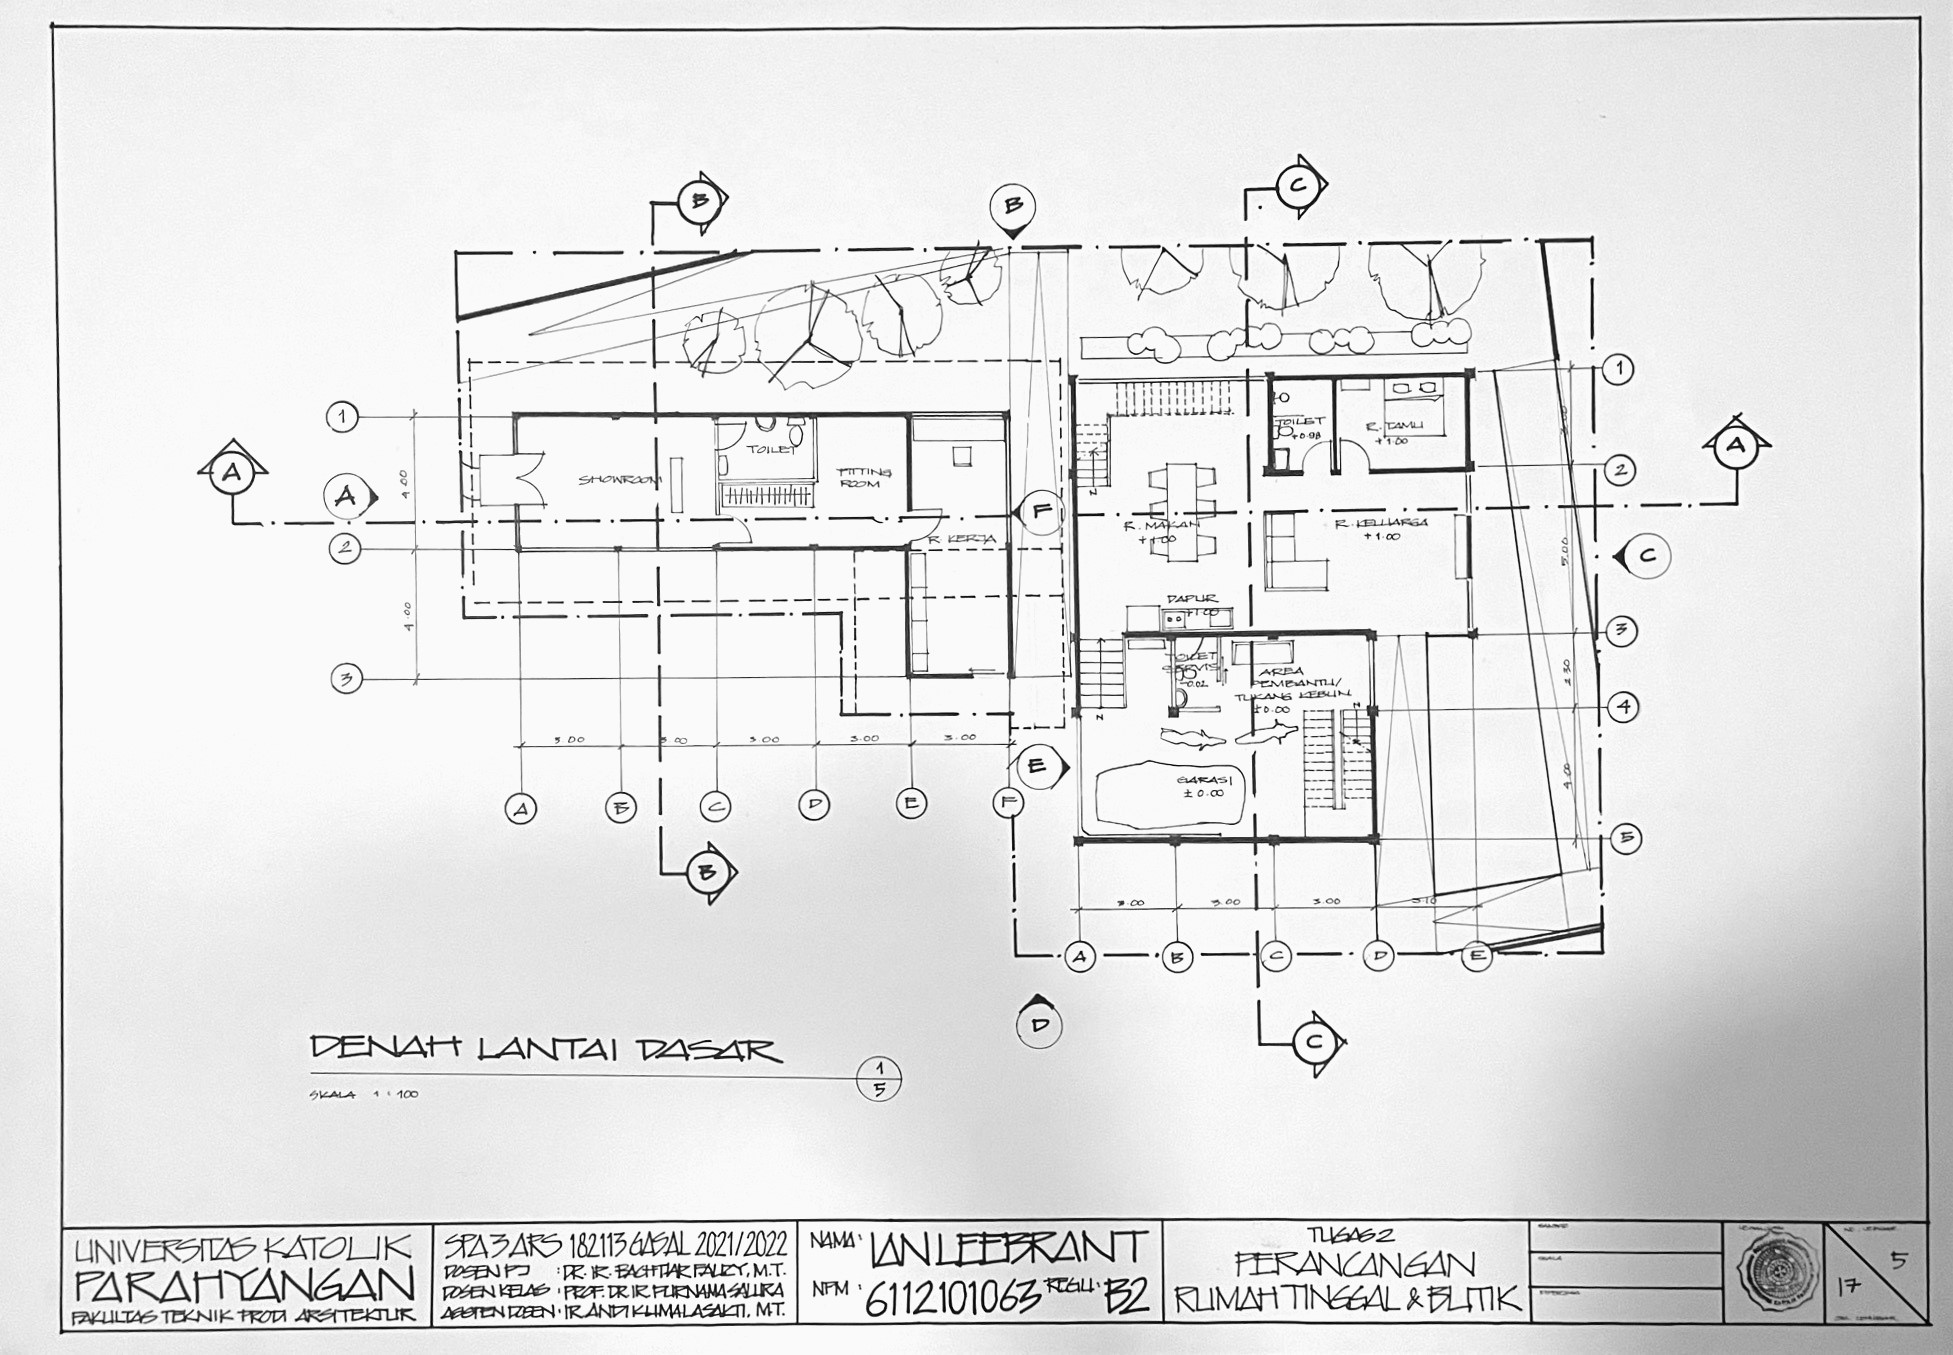 B
C
B
1
1
A
A
A
2
2
3
3
4
5
TOILET
SHOWROOM
FITTING
ROOM
R. KERJA
F
TOILET
+0.98
R. TAMU
+1.00
R. MAKAN
+1.00
R. KELUARGA
+1.00
C
DAPUR
+1.00
TOILET
SERVIS
-0.02
AREA
PEMBANTU/
TUKANG KEBUN
±0.00
GARASI
± 0.00
N
N
N
4.00
4.00
5.00
2.30
4.00
3.00
3.00
3.00
3.00
E
A
B
C
D
E
F
B
3.00
3.00
3.00
3.10
A
B
C
D
E
D
C
DENAH LANTAI DASAR
1
5
SKALA 1 : 100
UNIVERSITAS KATOLIK
PARAHYANGAN
FAKULTAS TEKNIK PRODI ARSITEKTUR
SPA 3 ARS 182113 GASAL 2021/2022
DOSEN PJ : DR. IR. BACHTIAR FAUZY, M.T.
DOSEN KELAS : PROF. DR. IR. PURNAMA SALURA
ASISTEN DOSEN : IR. ANDI KUMALASAKTI, M.T.
NAMA : IAN LEEBRANT
NPM : 6112101063 REGU : B2
TUGAS 2
PERANCANGAN
RUMAH TINGGAL & BUTIK
5
17